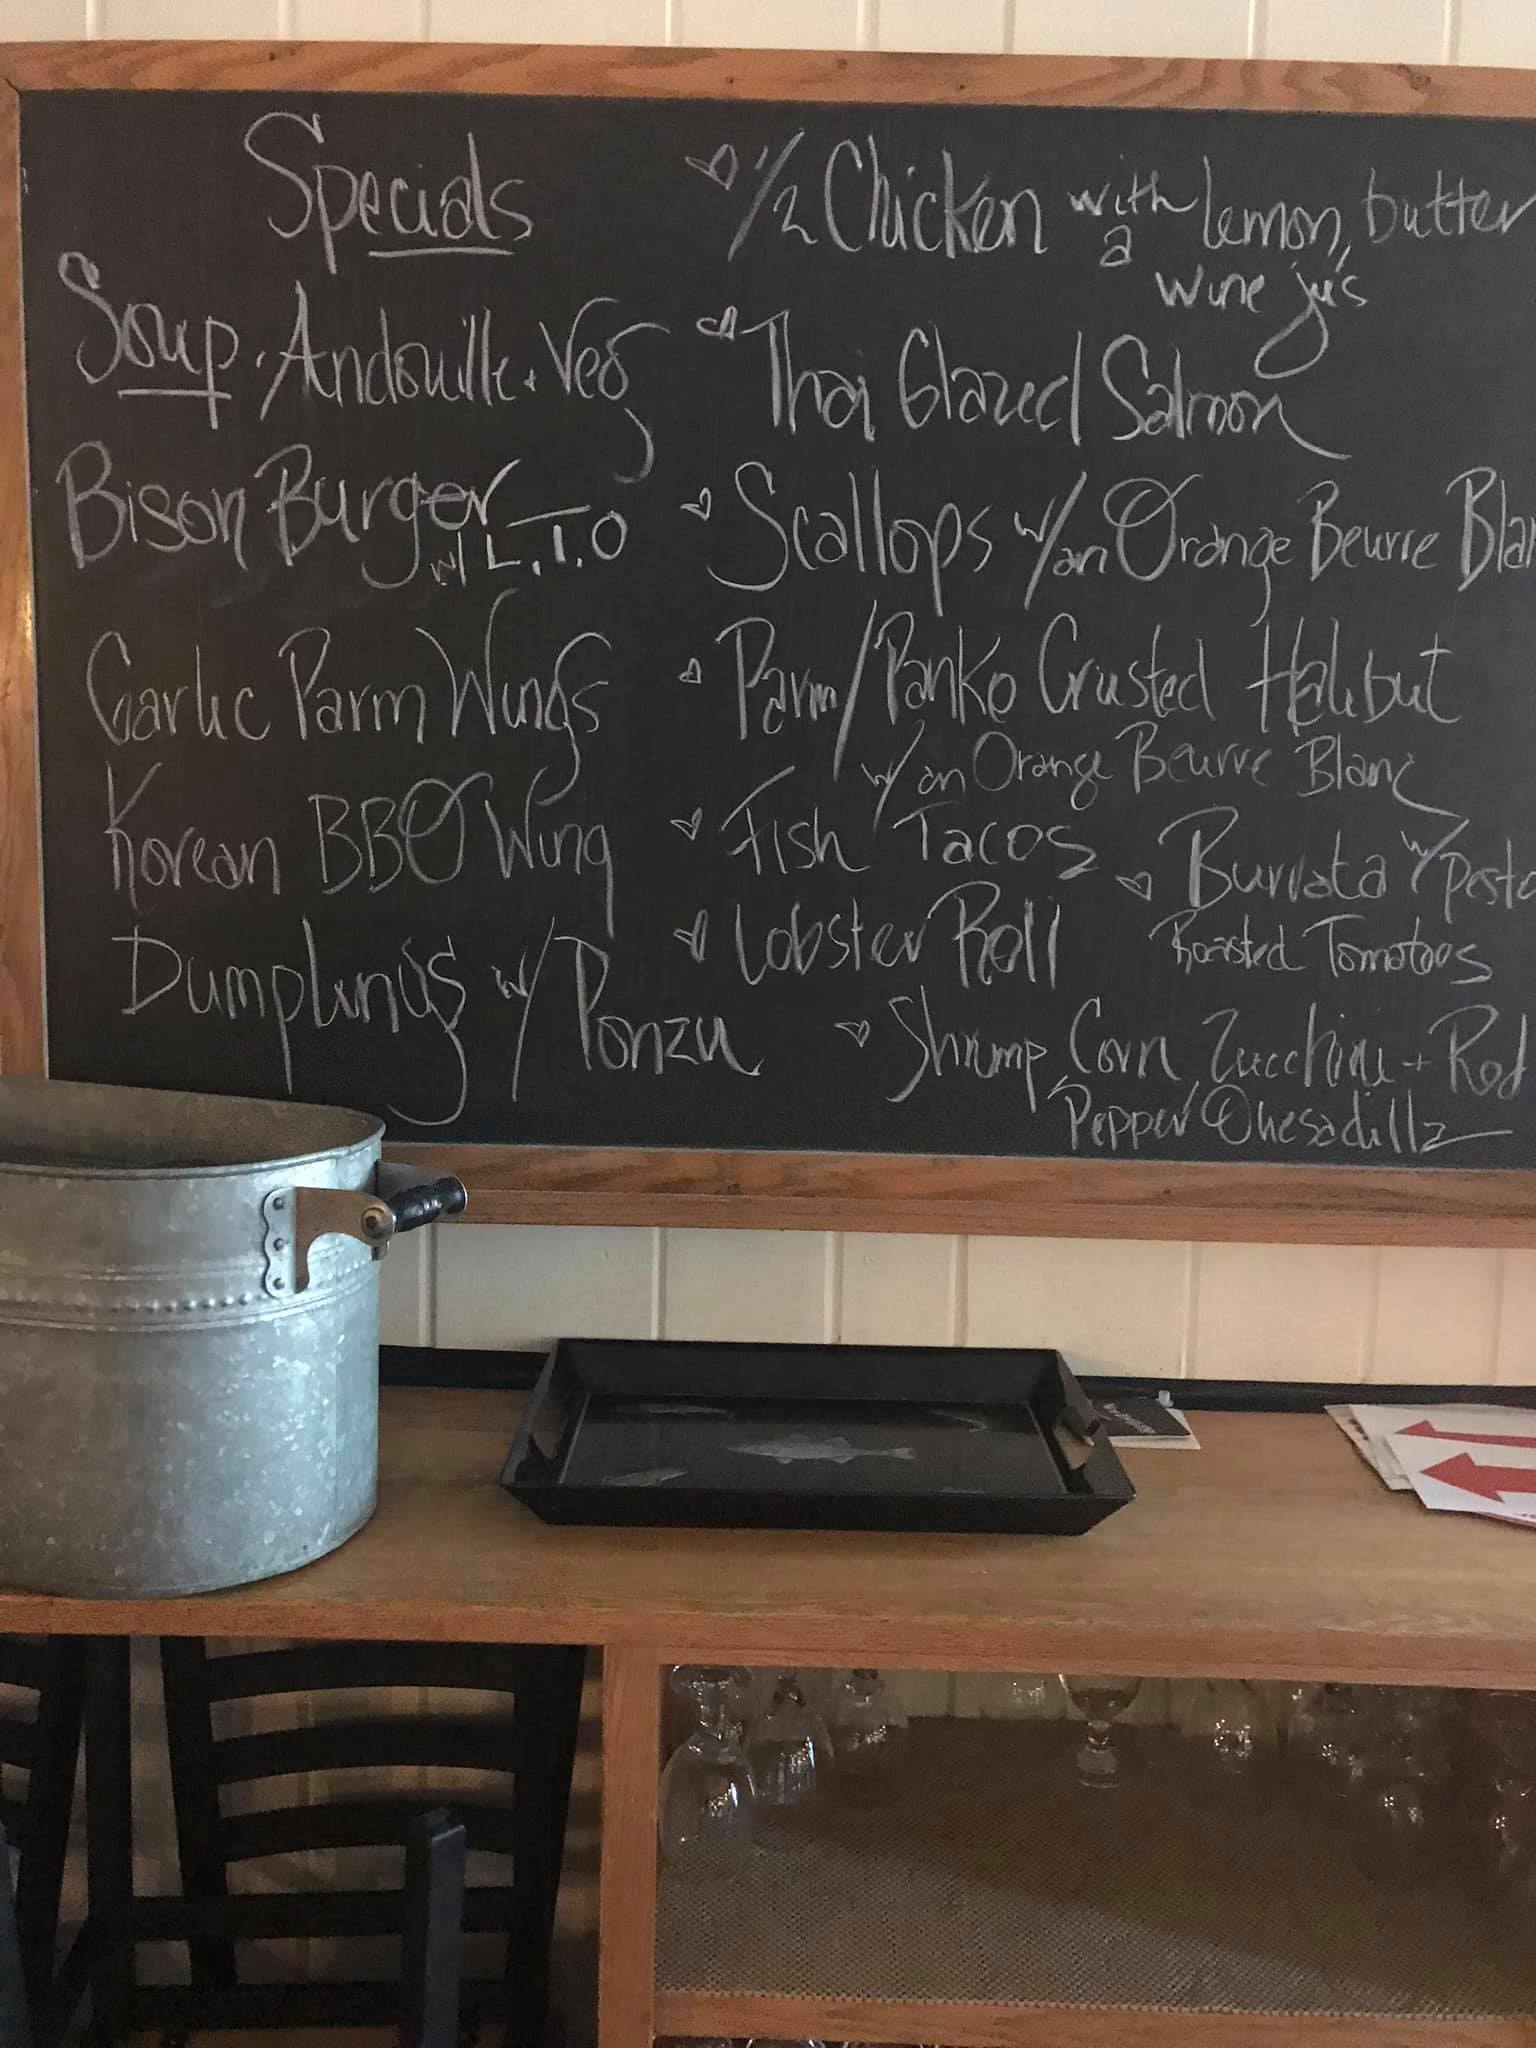 Specials
Soup. Andouille + Veg
Bison Burger
w/ L.T.O
Garlic Parm Wings
Korean BBQ Wing
Dumplings w/ Ponzu
1/2 Chicken with lemon, butter
a
wine jus
Thai Glazed Salmon
Scallops w/ an Orange Beurre Blan
Parm/Panko Crusted Halibut
w/ an Orange Beurre Blanc
Fish Tacos
Lobster Roll
Burrata w/ pesto
Roasted Tomatoes
Shrimp Corn Zucchini + Red
Pepper Quesadilla